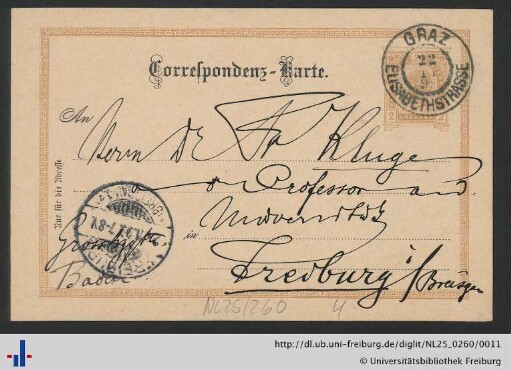 GRAZ
22
ELISABETHSTRASSE
Correspondenz-Karte.
2 2
An
Herrn Dr Fr Kluge
Professor an d.
Nur für die Adresse
in Universität
Grosshzgth.
Baden
Freiburg i/Breisgau
NL25/260 4
http://dl.ub.uni-freiburg.de/diglit/NL25_0260/0011
© Universitätsbibliothek Freiburg